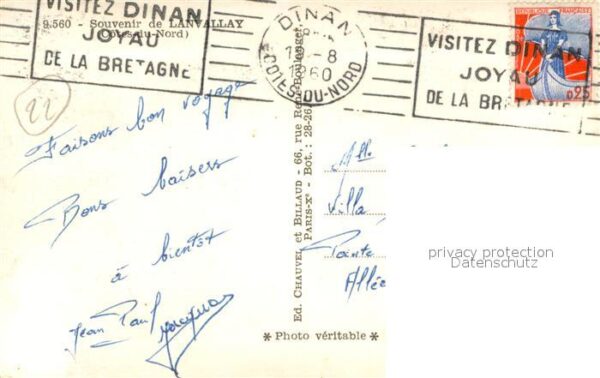 9.560 - Souvenir de LANVALLAY
(Côtes-du-Nord)
VISITEZ DINAN
JOYAU
DE LA BRETAGNE
DINAN
18
1 -8
1960
COTES-DU-NORD
VISITEZ DINAN
JOYAU
DE LA BRETAGNE
REPUBLIQUE FRANÇAISE
0,25
22
Faisons bon voyage
Bons baisers
à bientôt
Jean Paul Jacques
Ed. CHAUVEL et BILLAUD - 66, rue René-Boulanger
PARIS-Xe - Bot. : 28-26
* Photo véritable *
Mlle
Villa
Pointe
Allée
privacy protection
Datenschutz